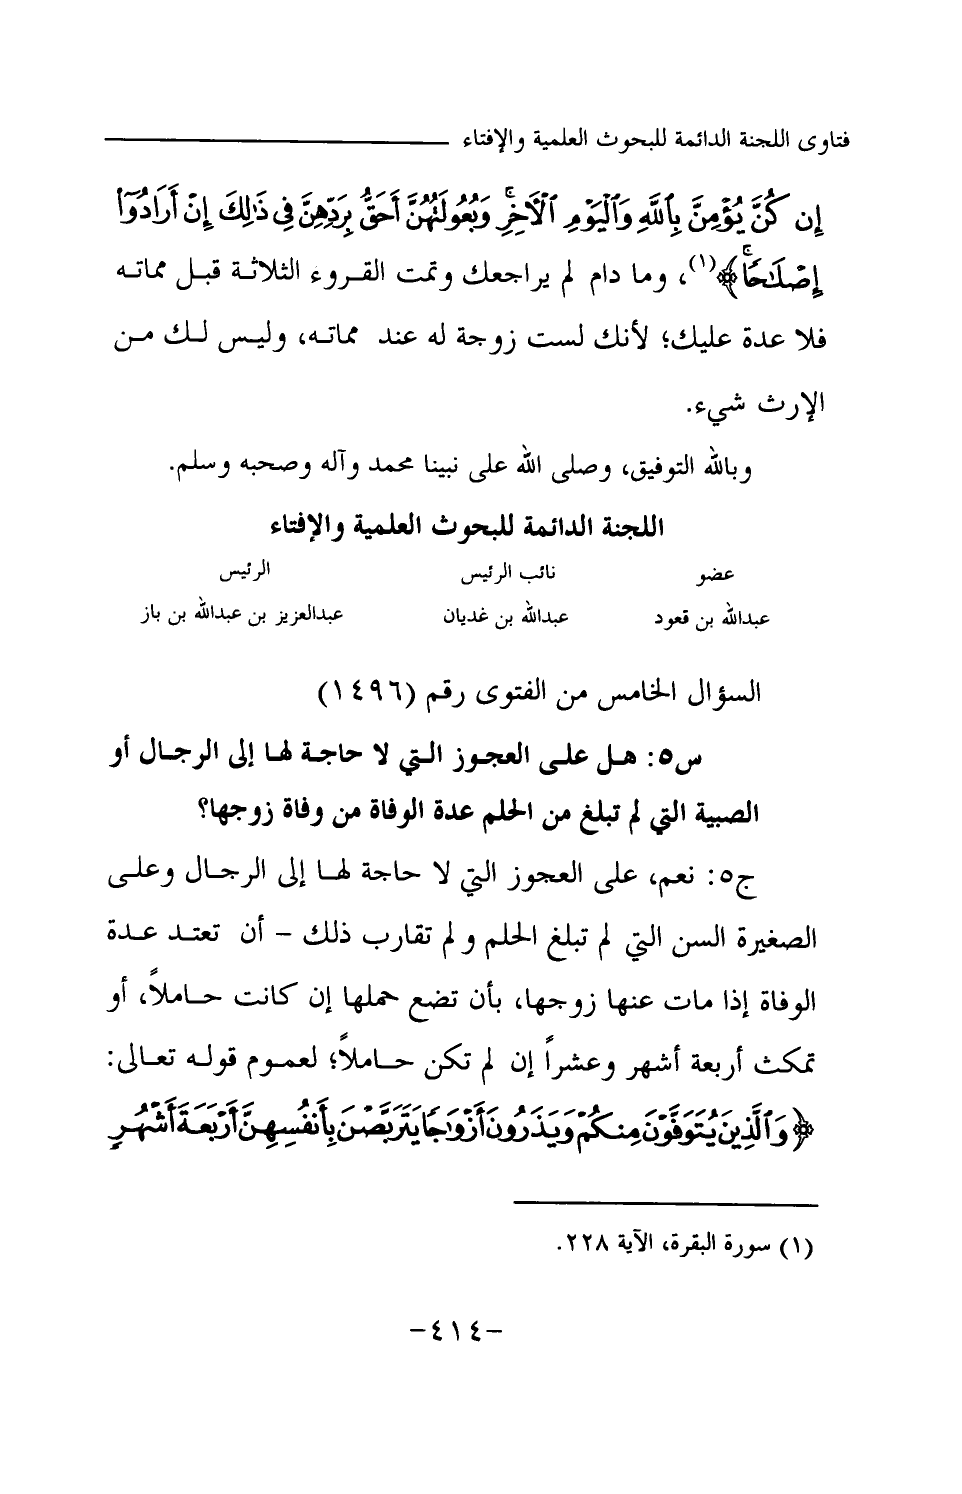 فتاوى اللجنة الدائمة للبحوث العلمية والإفتاء
إِن كُنَّ يُؤْمِنَّ بِٱللَّهِ وَٱلْيَوْمِ ٱلْـَٔاخِرِ ۚ وَبُعُولَتُهُنَّ أَحَقُّ بِرَدِّهِنَّ فِى ذَٰلِكَ إِنْ أَرَادُوٓا۟
إِصْلَـٰحًا ۚ﴾(١)، وما دام لم يراجعك وتمت القروء الثلاثة قبل مماته
فلا عدة عليك؛ لأنك لست زوجة له عند مماته، وليس لك من
الإرث شيء.
وبالله التوفيق، وصلى الله على نبينا محمد وآله وصحبه وسلم.
اللجنة الدائمة للبحوث العلمية والإفتاء
عضو نائب الرئيس الرئيس
عبدالله بن قعود عبدالله بن غديان عبدالعزيز بن عبدالله بن باز
السؤال الخامس من الفتوى رقم (١٤٩٦)
س٥: هل على العجوز التي لا حاجة لها إلى الرجال أو
الصبية التي لم تبلغ من الحلم عدة الوفاة من وفاة زوجها؟
ج٥: نعم، على العجوز التي لا حاجة لها إلى الرجال وعلى
الصغيرة السن التي لم تبلغ الحلم ولم تقارب ذلك – أن تعتد عدة
الوفاة إذا مات عنها زوجها، بأن تضع حملها إن كانت حاملاً، أو
تمكث أربعة أشهر وعشراً إن لم تكن حاملاً؛ لعموم قوله تعالى:
﴿وَٱلَّذِينَ يُتَوَفَّوْنَ مِنكُمْ وَيَذَرُونَ أَزْوَٰجًا يَتَرَبَّصْنَ بِأَنفُسِهِنَّ أَرْبَعَةَ أَشْهُرٍ
(١) سورة البقرة، الآية ٢٢٨.
-٤١٤-